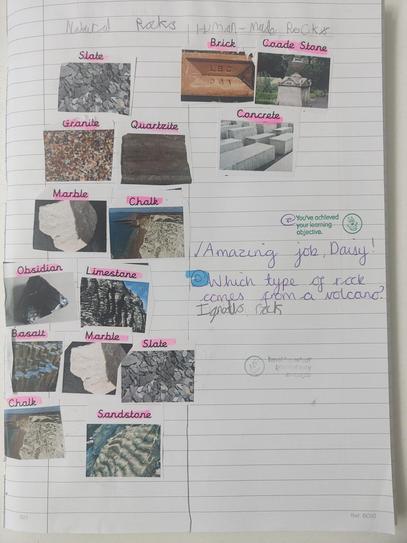 Natural Rocks
Human-Made Rocks
Slate
Brick
Coade Stone
LBC
Granite
Quartzite
Concrete
Marble
Chalk
You've achieved
your learning
objective.
✓Amazing job, Daisy!
Obsidian
Limestone
Which type of rock
comes from a volcano?
Ignous rock
Basalt
Marble
Slate
Chalk
Sandstone